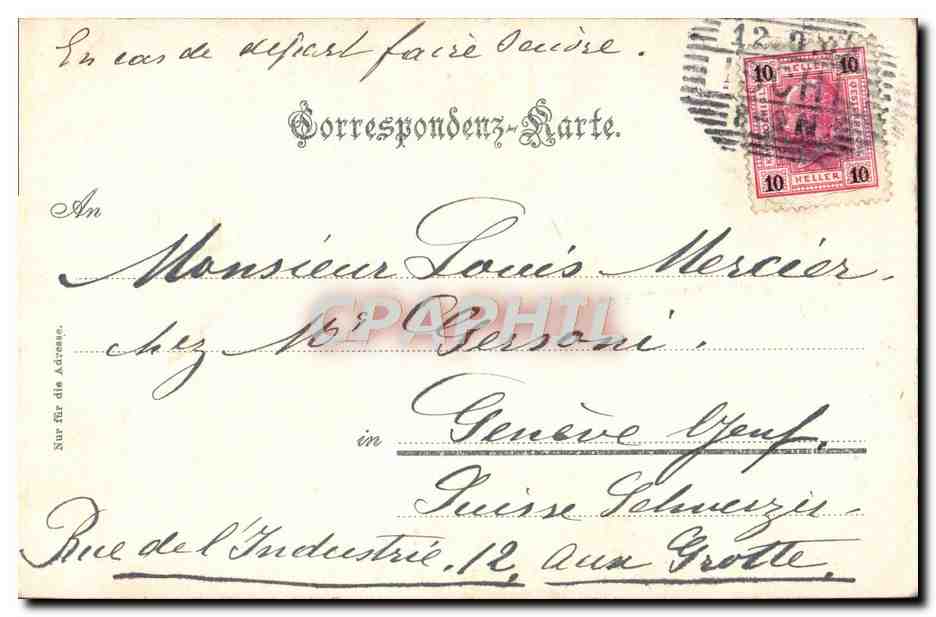 En cas de départ faire suivre.
Correspondenz-Karte.
An
Monsieur Louis Mercier.
chez Mr Gersoni.
in Genève Genf.
Suisse Schweiz
Rue de l'Industrie. 12, aux Grotte.
Nur für die Adresse.
CPAPHIL
12
10 HELLER 10
10 HELLER 10